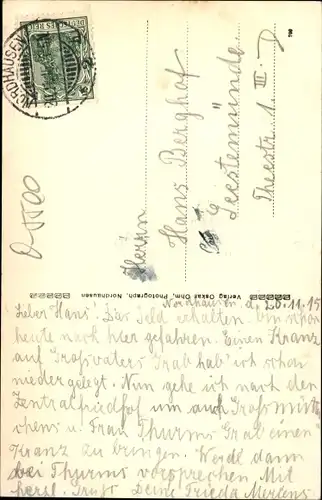 NORDHAUSEN
DEUTSCHES REICH
Herrn
Hans Berghof
Geestemünde
Theestr. 1. III. r.
790
Verlag Oskar Ohm, Photograph, Nordhausen
Nordhausen d. 20.11.15
Lieber Hans! Das Geld erhalten bin schon
heute nach hier gefahren. Einen Kranz
auf Großvaters Grab hab' ich schon
niedergelegt. Nun gehe ich nach den
Zentralfriedhof um auch Großmütt
chens u. Frau Thurms Grab einen
Kranz zu bringen. Werde dann
bei Thurms vorsprechen. Mit
herzl. Gruß Deine Frieda Mertens